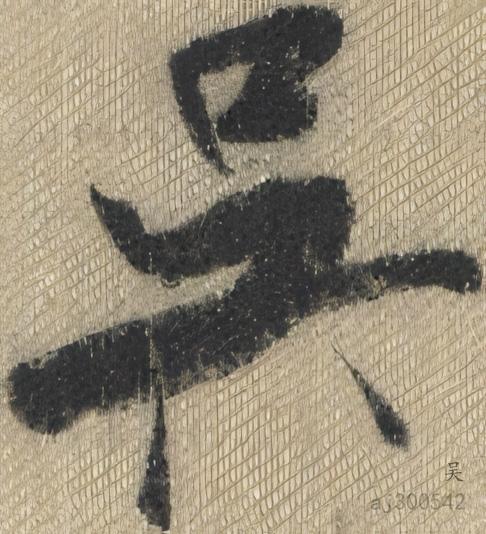 吴
吴
aj300542